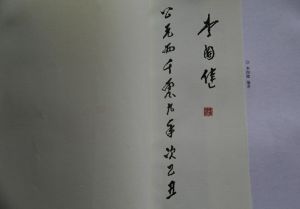 李国健
公元两千零九年次己丑